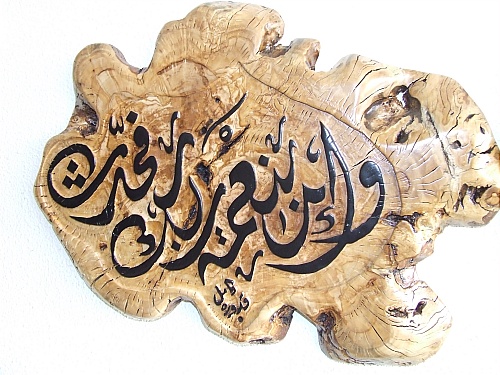 وإن بنعمة ربك فحدّث